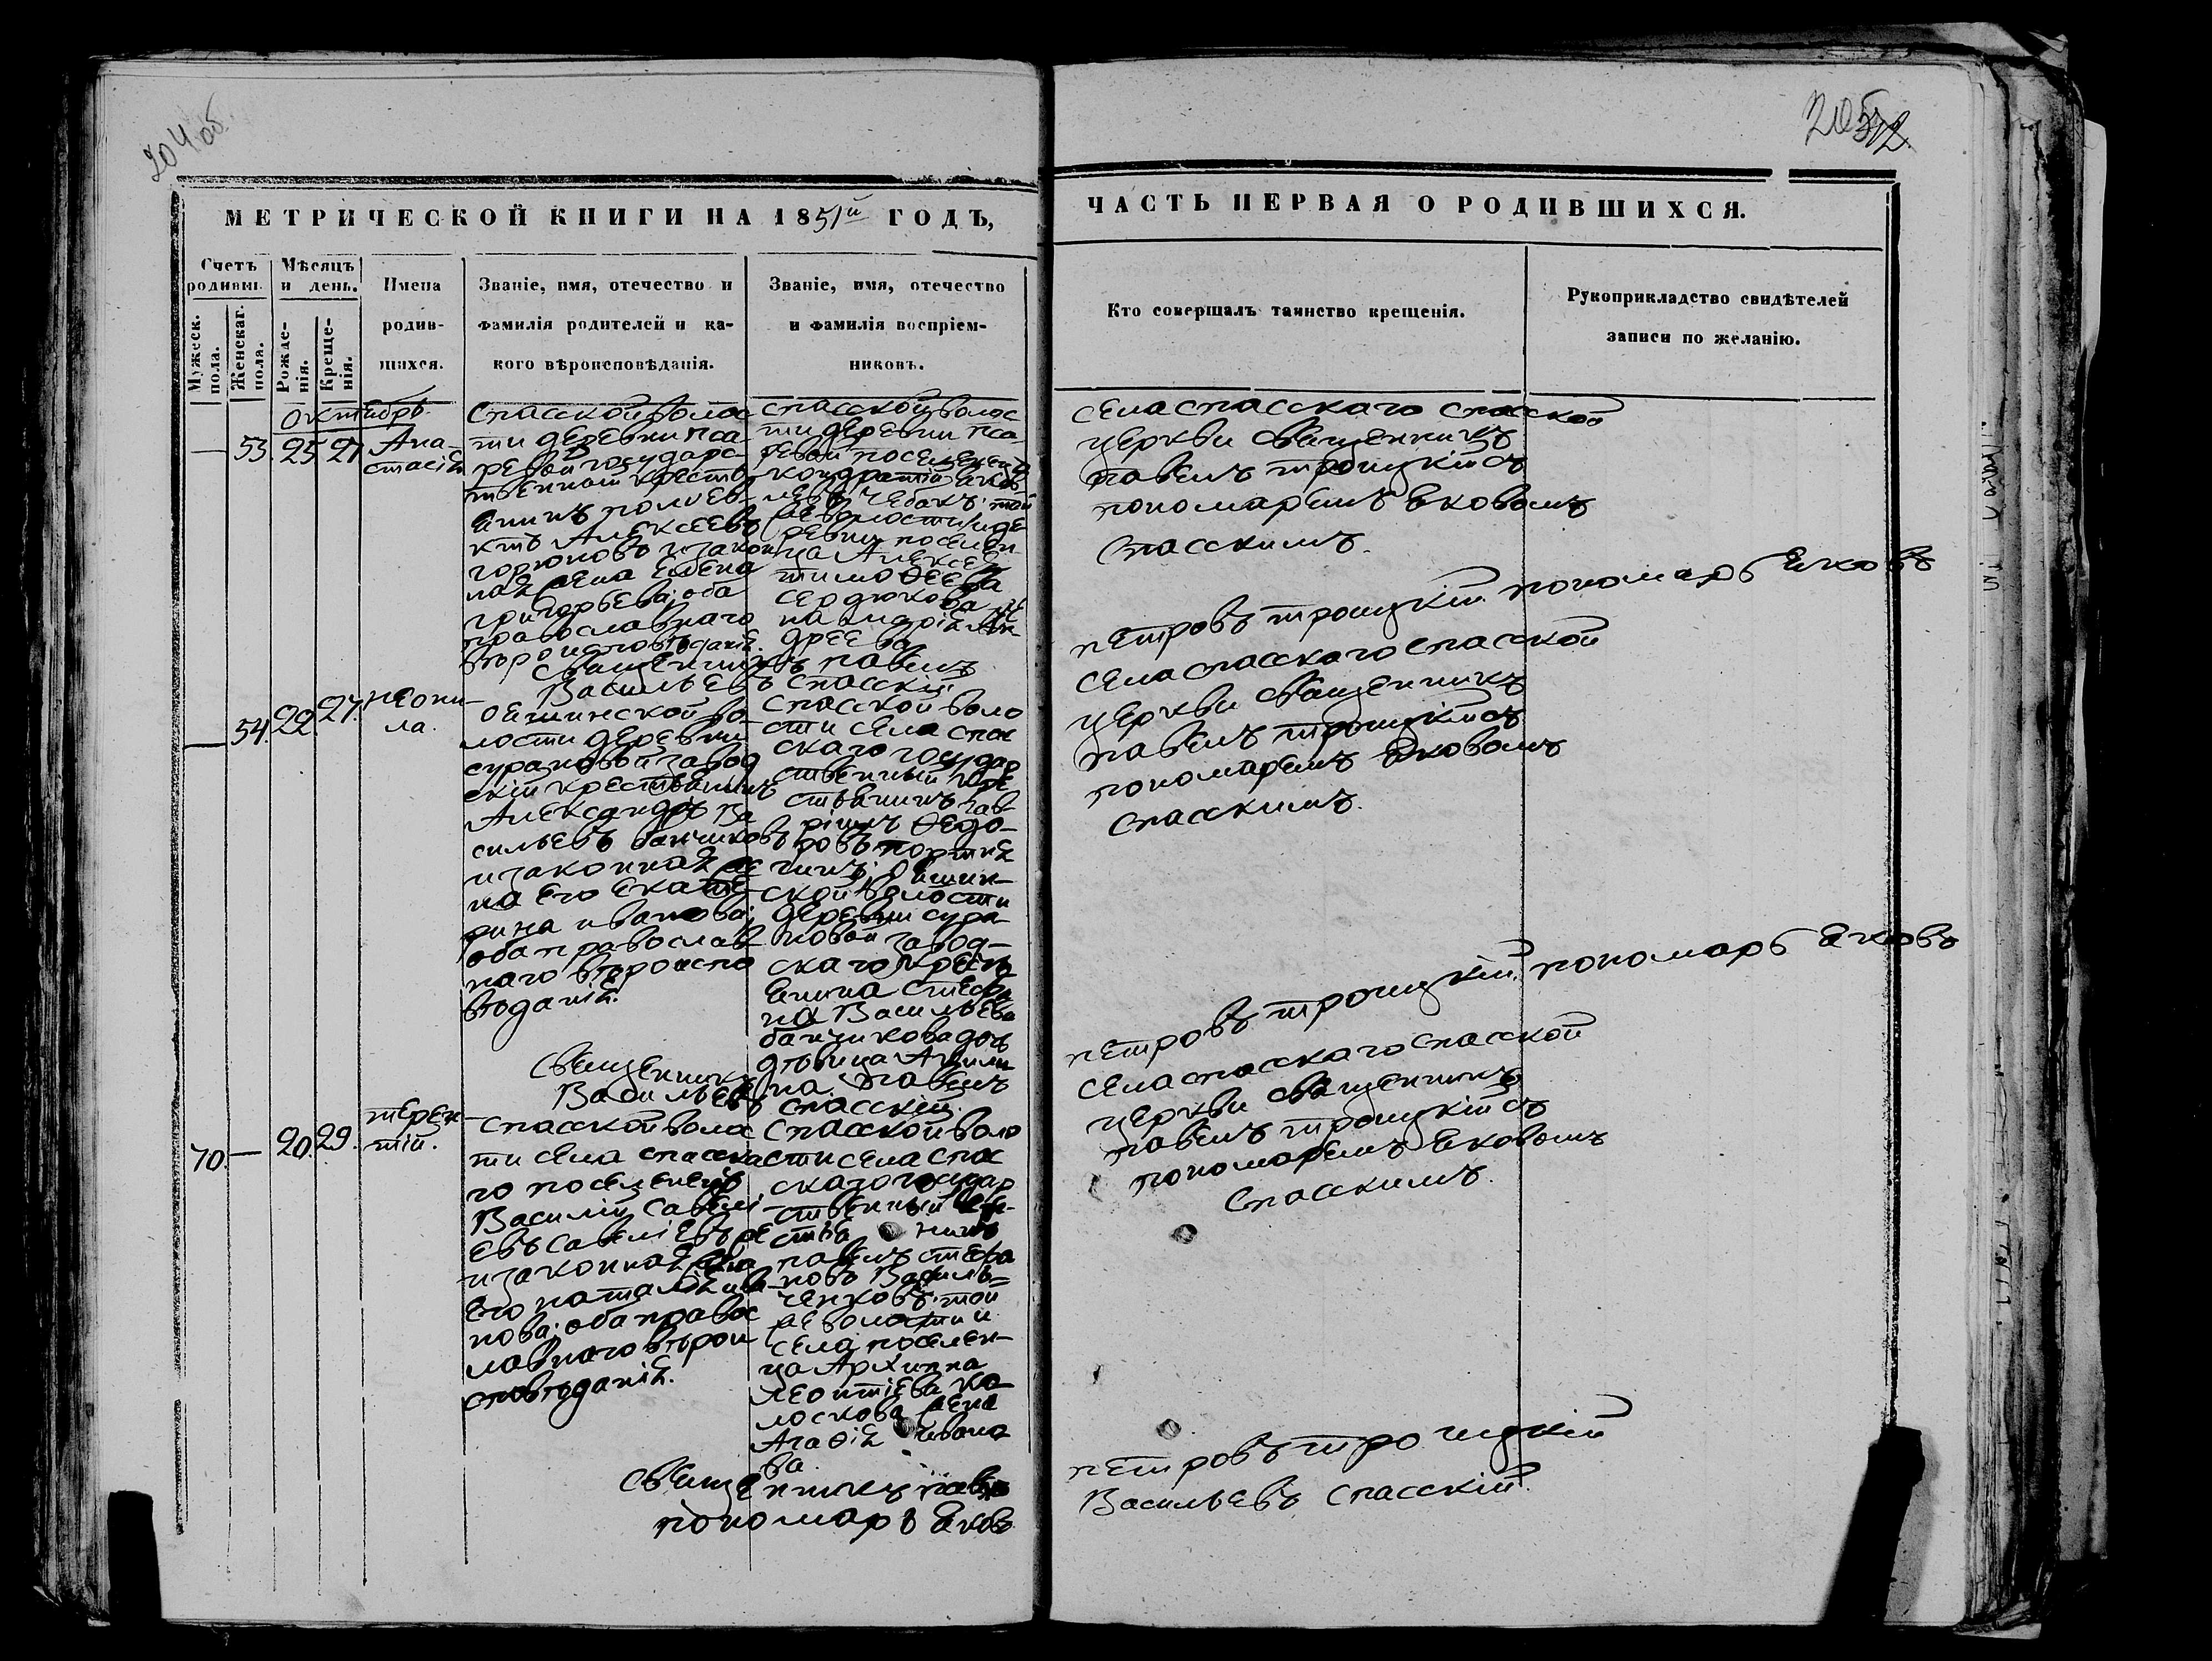 204 об.
205
МЕТРИЧЕСКОЙ КНИГИ НА 1851й ГОДЪ,
ЧАСТЬ ПЕРВАЯ О РОДИВШИХСЯ.
Счетъ родивш.
Мужеск. пола.
Женскаг. пола.
Мѣсяцъ и день.
Рожде-нія.
Креще-нія.
Имена
родив-
шихся.
Званіе, имя, отечество и
фамилія родителей и ка-
кого вѣроисповѣданія.
Званіе, имя, отечество
и фамилія воспріем-
никовъ.
Кто совершалъ таинство крещенія.
Рукоприкладство свидѣтелей
записи по желанію.
октябрь.
— 53. 25 27
Ана-
стасія
Спасской волос
ти деревни пса
ревой государс
твенной кресть
янинъ полиев
ктъ Алексеевъ
горюновъ и закон
ная жена Елена
григорьева; оба
православнаго
вѣроисповѣданія.
спасской волос
ти деревни пса
ревой поселенецъ
кондратій яков
левъ чебакъ; той
же волости и де
ревни поселен
ца Алексея
тимофеева
сердюкова же
на марія Ан
дреева
села спасскаго спасской
церкви священникъ
павелъ троицкій съ
пономаремъ яковомъ
спасскимъ.
священникъ павелъ
петровъ троицкій. пономарь яковъ
Васильевъ спасскій.
— 54. 22. 27.
неони-
ла.
Оешинской во-
лости деревни
турановой завод
скій крестьянинъ
Александръ Ва
сильевъ банщиковъ
и законная же
на его екате
рина иванова;
оба православ
наго вѣроиспо
вѣданія.
спасской воло
сти села спас
скаго государ
ственный кре
стьянинъ гав
рилъ федо-
ровъ
ской волости
деревни тура
новой завод-
скаго крестья
янина стефа
на Васильева
банщикова дочь
дѣвица Акили
на.
села спасскаго спасской
церкви священникъ
павелъ троицкій съ
пономаремъ яковомъ
спасскимъ.
священникъ павелъ
петровъ троицкій. пономарь яковъ
Васильевъ спасскій.
70. — 20. 29.
терен-
тій.
спасской волос
ти села спасска
го поселенецъ
Василій савели
евъ савеліевъ
и законная жена
его наталія ива
нова; оба правос
лавнаго вѣрои
сповѣданія.
спасской воло
сти села спас
скаго государ
ственный кре-
стья нинъ
павелъ стефа
новъ Василь=
ченковъ; той
же волости и
села поселен-
ца Архиппа
леонтіева ко
лоскова жена
Агафія ивано
ва.
села спасскаго спасской
церкви священникъ
павелъ троицкій съ
пономаремъ яковомъ
спасскимъ.
священникъ павелъ
петровъ троицкій
пономарь яковъ
Васильевъ спасскій.